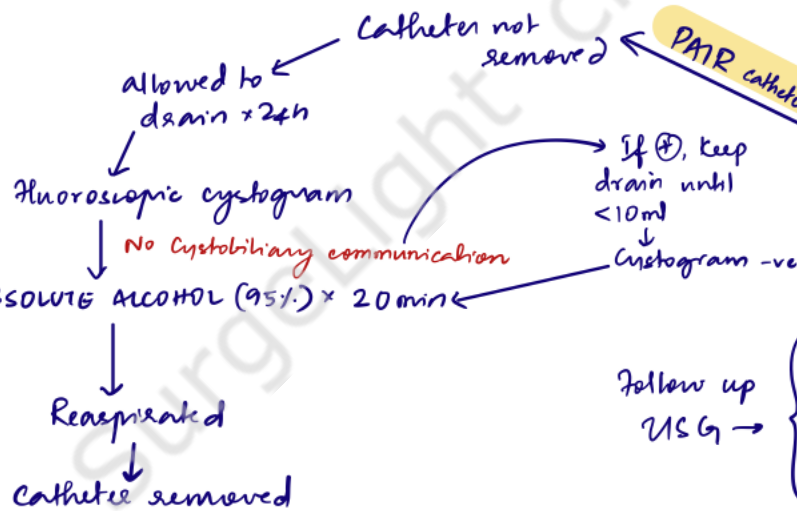 Catheter not
removed
PAIR cathete
allowed to
drain × 24h
Fluoroscopic cystogram
No Cystobiliary communication
If ⊕, keep
drain until
<10ml
Cystogram -ve
SOLUTE ALCOHOL (95%) × 20min
Reaspirated
Catheter removed
Follow up
USG →
SurgeLight